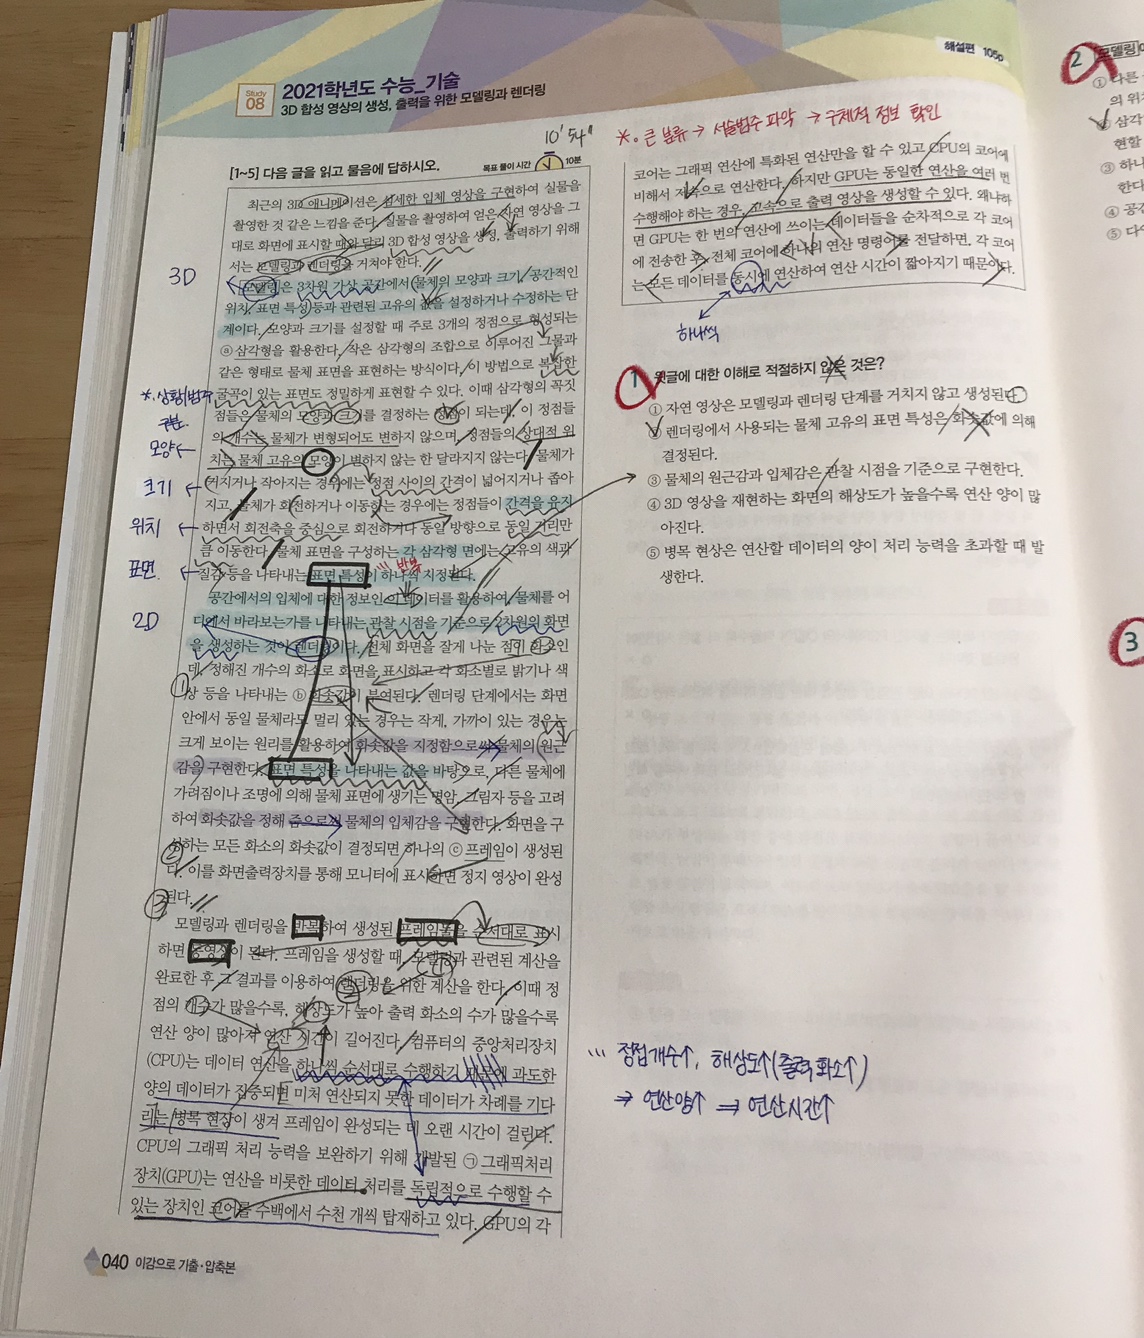 해설편 105p
Study 08
2021학년도 수능_기술
3D 합성 영상의 생성, 출력을 위한 모델링과 렌더링
10' 54"
[1~5] 다음 글을 읽고 물음에 답하시오.
목표 풀이 시간 10분
최근의 3D 애니메이션은 섬세한 입체 영상을 구현하여 실물을
촬영한 것 같은 느낌을 준다. 실물을 촬영하여 얻은 자연 영상을 그
대로 화면에 표시할 때와 달리 3D 합성 영상을 생성, 출력하기 위해
서는 모델링과 렌더링을 거쳐야 한다.
3D
모델링은 3차원 가상 공간에서 물체의 모양과 크기, 공간적인
위치, 표면 특성 등과 관련된 고유의 값을 설정하거나 수정하는 단
계이다. 모양과 크기를 설정할 때 주로 3개의 정점으로 형성되는
ⓐ 삼각형을 활용한다. 작은 삼각형의 조합으로 이루어진 그물과
같은 형태로 물체 표면을 표현하는 방식이다. 이 방법으로 복잡한
굴곡이 있는 표면도 정밀하게 표현할 수 있다. 이때 삼각형의 꼭짓
점들은 물체의 모양과 크기를 결정하는 정점이 되는데, 이 정점들
의 개수는 물체가 변형되어도 변하지 않으며, 정점들의 상대적 위
치는 물체 고유의 모양이 변하지 않는 한 달라지지 않는다. 물체가
커지거나 작아지는 경우에는 정점 사이의 간격이 넓어지거나 좁아
지고, 물체가 회전하거나 이동하는 경우에는 정점들이 간격을 유지
하면서 회전축을 중심으로 회전하거나 동일 방향으로 동일 거리만
큼 이동한다. 물체 표면을 구성하는 각 삼각형 면에는 고유의 색과
질감 등을 나타내는 표면 특성이 하나씩 지정된다.
*. 상황/범주
구분.
모양
크기
위치
표면.
반복
2D
공간에서의 입체에 대한 정보인 이 데이터를 활용하여, 물체를 어
디에서 바라보는가를 나타내는 관찰 시점을 기준으로 2차원의 화면
을 생성하는 것이 렌더링이다. 전체 화면을 잘게 나눈 점이 화소인
데, 정해진 개수의 화소로 화면을 표시하고 각 화소별로 밝기나 색
상 등을 나타내는 ⓑ 화솟값이 부여된다. 렌더링 단계에서는 화면
안에서 동일 물체라도 멀리 있는 경우는 작게, 가까이 있는 경우는
크게 보이는 원리를 활용하여 화솟값을 지정함으로써 물체의 원근
감을 구현한다. 표면 특성을 나타내는 값을 바탕으로, 다른 물체에
가려짐이나 조명에 의해 물체 표면에 생기는 명암, 그림자 등을 고려
하여 화솟값을 정해 줌으로써 물체의 입체감을 구현한다. 화면을 구
성하는 모든 화소의 화솟값이 결정되면 하나의 ⓒ 프레임이 생성된
다. 이를 화면출력장치를 통해 모니터에 표시하면 정지 영상이 완성
된다.
①
②
③
모델링과 렌더링을 반복하여 생성된 프레임들을 순서대로 표시
하면 동영상이 된다. 프레임을 생성할 때, 모델링과 관련된 계산을
완료한 후 그 결과를 이용하여 렌더링을 위한 계산을 한다. 이때 정
점의 개수가 많을수록, 해상도가 높아 출력 화소의 수가 많을수록
연산 양이 많아져 연산 시간이 길어진다. 컴퓨터의 중앙처리장치
(CPU)는 데이터 연산을 하나씩 순서대로 수행하기 때문에 과도한
양의 데이터가 집중되면 미처 연산되지 못한 데이터가 차례를 기다
리는 병목 현상이 생겨 프레임이 완성되는 데 오랜 시간이 걸린다.
CPU의 그래픽 처리 능력을 보완하기 위해 개발된 ㉠ 그래픽처리
장치(GPU)는 연산을 비롯한 데이터 처리를 독립적으로 수행할 수
있는 장치인 코어를 수백에서 수천 개씩 탑재하고 있다. GPU의 각
040 이감으로 기출·압축본
*. 큰 분류 → 서술범주 파악 → 구체적 정보 확인
코어는 그래픽 연산에 특화된 연산만을 할 수 있고 CPU의 코어에
비해서 저속으로 연산한다. 하지만 GPU는 동일한 연산을 여러 번
수행해야 하는 경우, 고속으로 출력 영상을 생성할 수 있다. 왜냐하
면 GPU는 한 번의 연산에 쓰이는 데이터들을 순차적으로 각 코어
에 전송한 후, 전체 코어에 하나의 연산 명령어를 전달하면, 각 코어
는 모든 데이터를 동시에 연산하여 연산 시간이 짧아지기 때문이다.
하나씩
1 윗글에 대한 이해로 적절하지 않은 것은?
① 자연 영상은 모델링과 렌더링 단계를 거치지 않고 생성된다.
② 렌더링에서 사용되는 물체 고유의 표면 특성은 화솟값에 의해
결정된다.
③ 물체의 원근감과 입체감은 관찰 시점을 기준으로 구현한다.
④ 3D 영상을 재현하는 화면의 해상도가 높을수록 연산 양이 많
아진다.
⑤ 병목 현상은 연산할 데이터의 양이 처리 능력을 초과할 때 발
생한다.
정점개수↑, 해상도↑(출력 화소↑)
⇒ 연산양↑ ⇒ 연산시간↑
2 모델링
① 다른
의 위치
② 삼각
현할
③ 하나
한다
④ 공간
⑤ 다
3